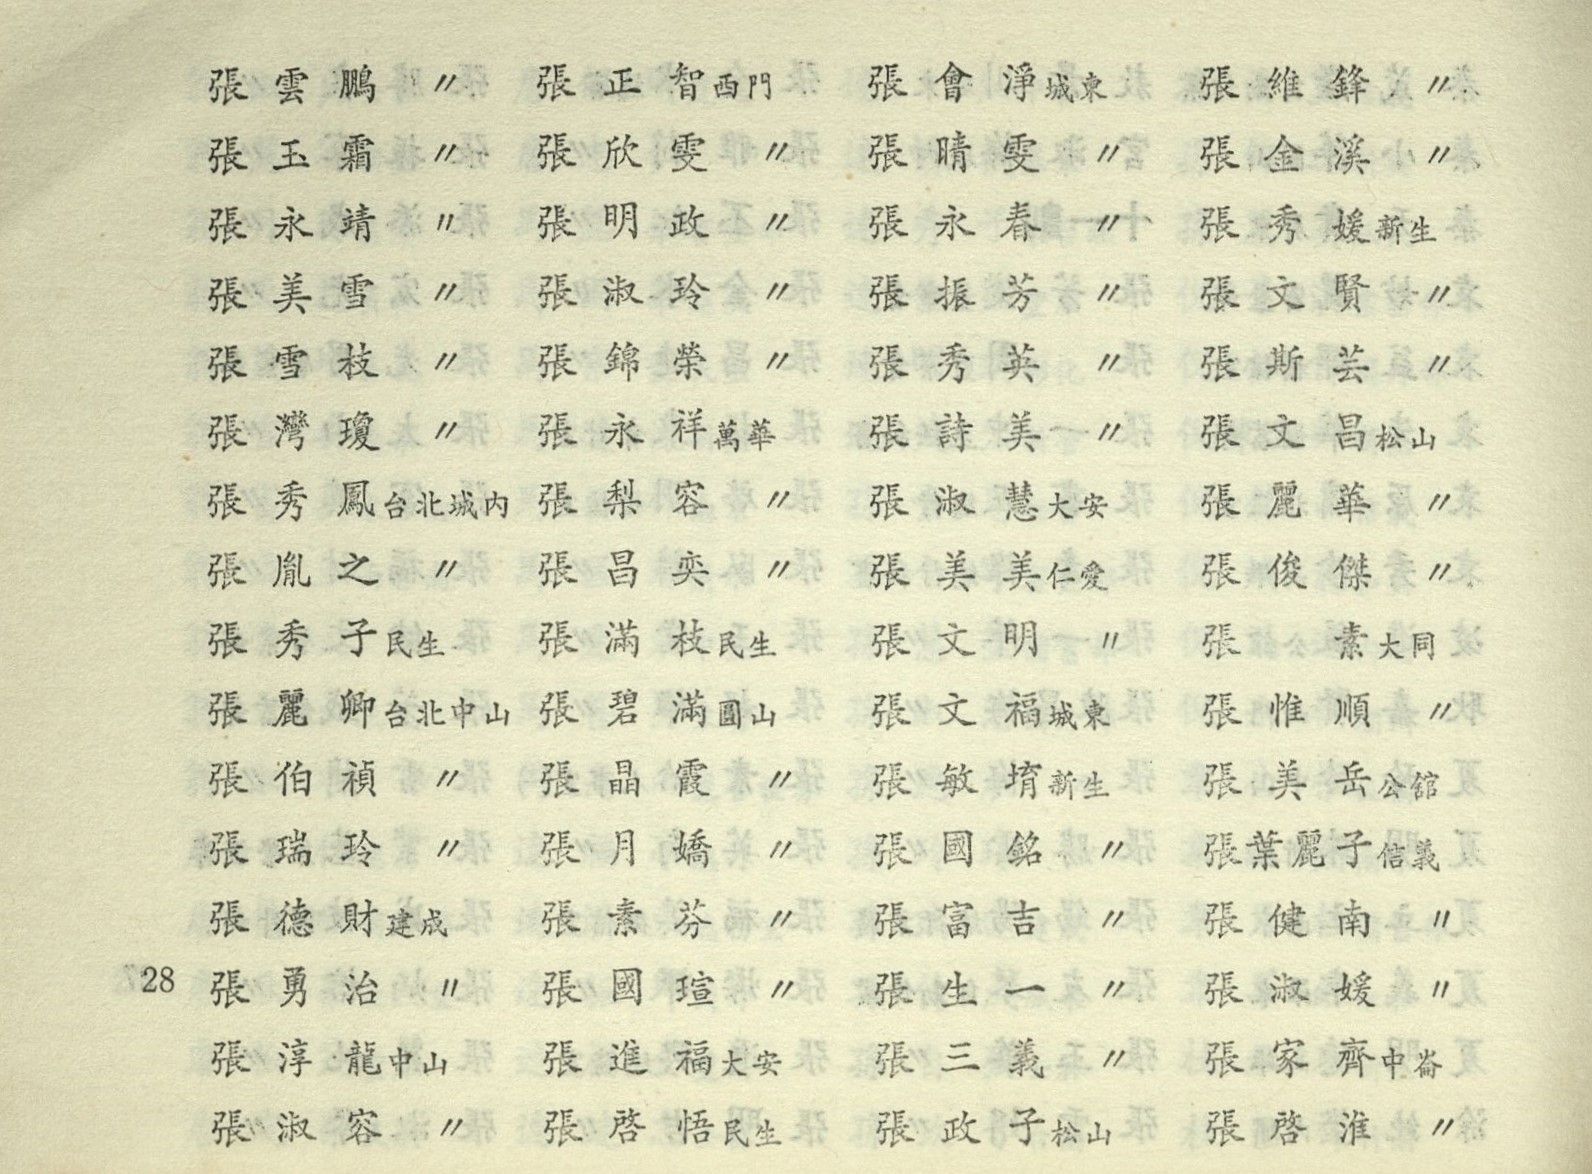 張雲鵬 〃 張正智西門 張會淨城東 張維鋒 〃
張玉霜 〃 張欣雯 〃 張晴雯 〃 張金溪 〃
張永靖 〃 張明政 〃 張永春 〃 張秀媛新生
張美雪 〃 張淑玲 〃 張振芳 〃 張文賢 〃
張雪枝 〃 張錦榮 〃 張秀英 〃 張斯芸 〃
張灣瓊 〃 張永祥萬華 張詩美 〃 張文昌松山
張秀鳳台北城內 張梨容 〃 張淑慧大安 張麗華 〃
張胤之 〃 張昌奕 〃 張美美仁愛 張俊傑 〃
張秀子民生 張滿枝民生 張文明 〃 張素大同
張麗卿台北中山 張碧滿圓山 張文福城東 張惟順 〃
張伯禎 〃 張晶霞 〃 張敏堉新生 張美岳公館
張瑞玲 〃 張月嬌 〃 張國銘 〃 張葉麗子信義
張德財建成 張素芬 〃 張富吉 〃 張健南 〃
28 張勇治 〃 張國瑄 〃 張生一 〃 張淑媛 〃
張淳龍中山 張進福大安 張三義 〃 張家齊中崙
張淑容 〃 張啓悟民生 張政子松山 張啓淮 〃